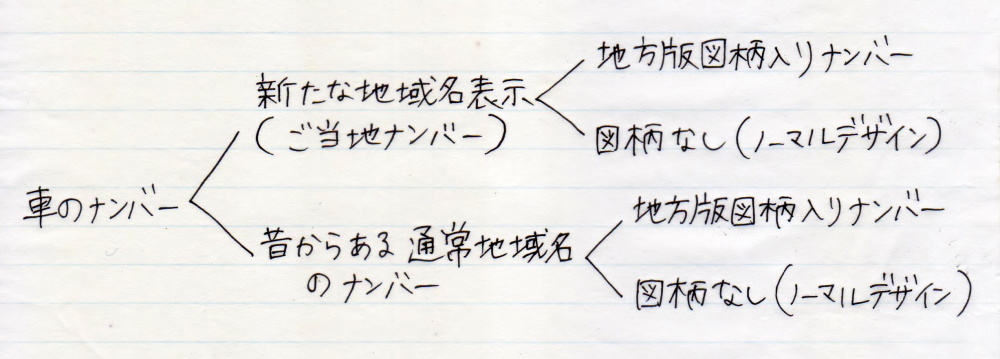 車のナンバー
新たな地域名表示
(ご当地ナンバー)
地方版図柄入りナンバー
図柄なし(ノーマルデザイン)
昔からある通常地域名
のナンバー
地方版図柄入りナンバー
図柄なし(ノーマルデザイン)